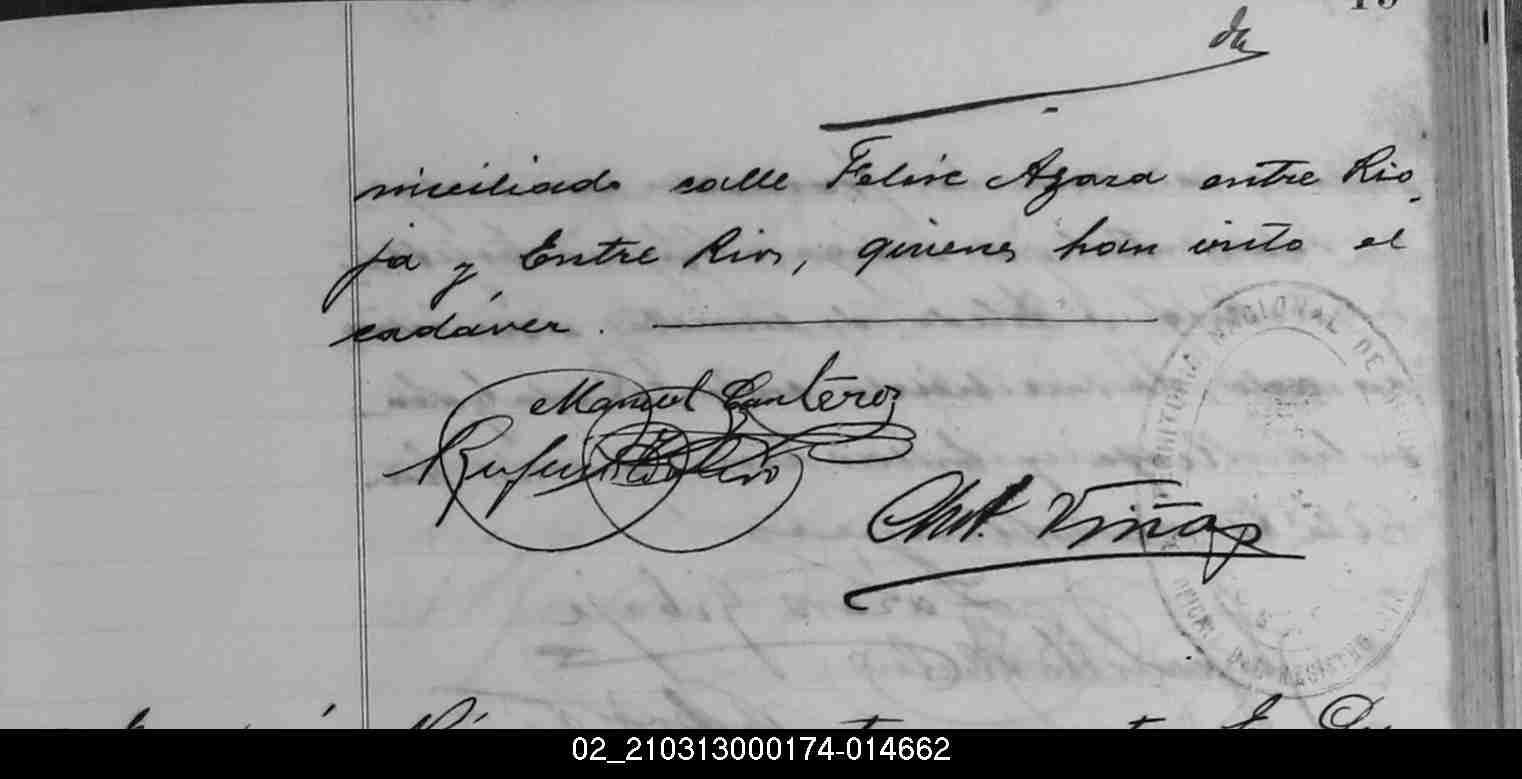 miciliado calle Felix Azara entre Rio
ja y Entre Rios, quienes han visto el
cadáver.
Manuel Canteros
Rufino
Ant. Viñas
NACIONAL DE
OFICINA DEL REGISTRO CIVIL
02_210313000174-014662